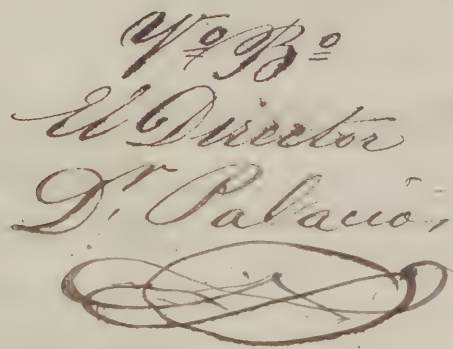 Vº Bº
El Director
Dr. Palacio,